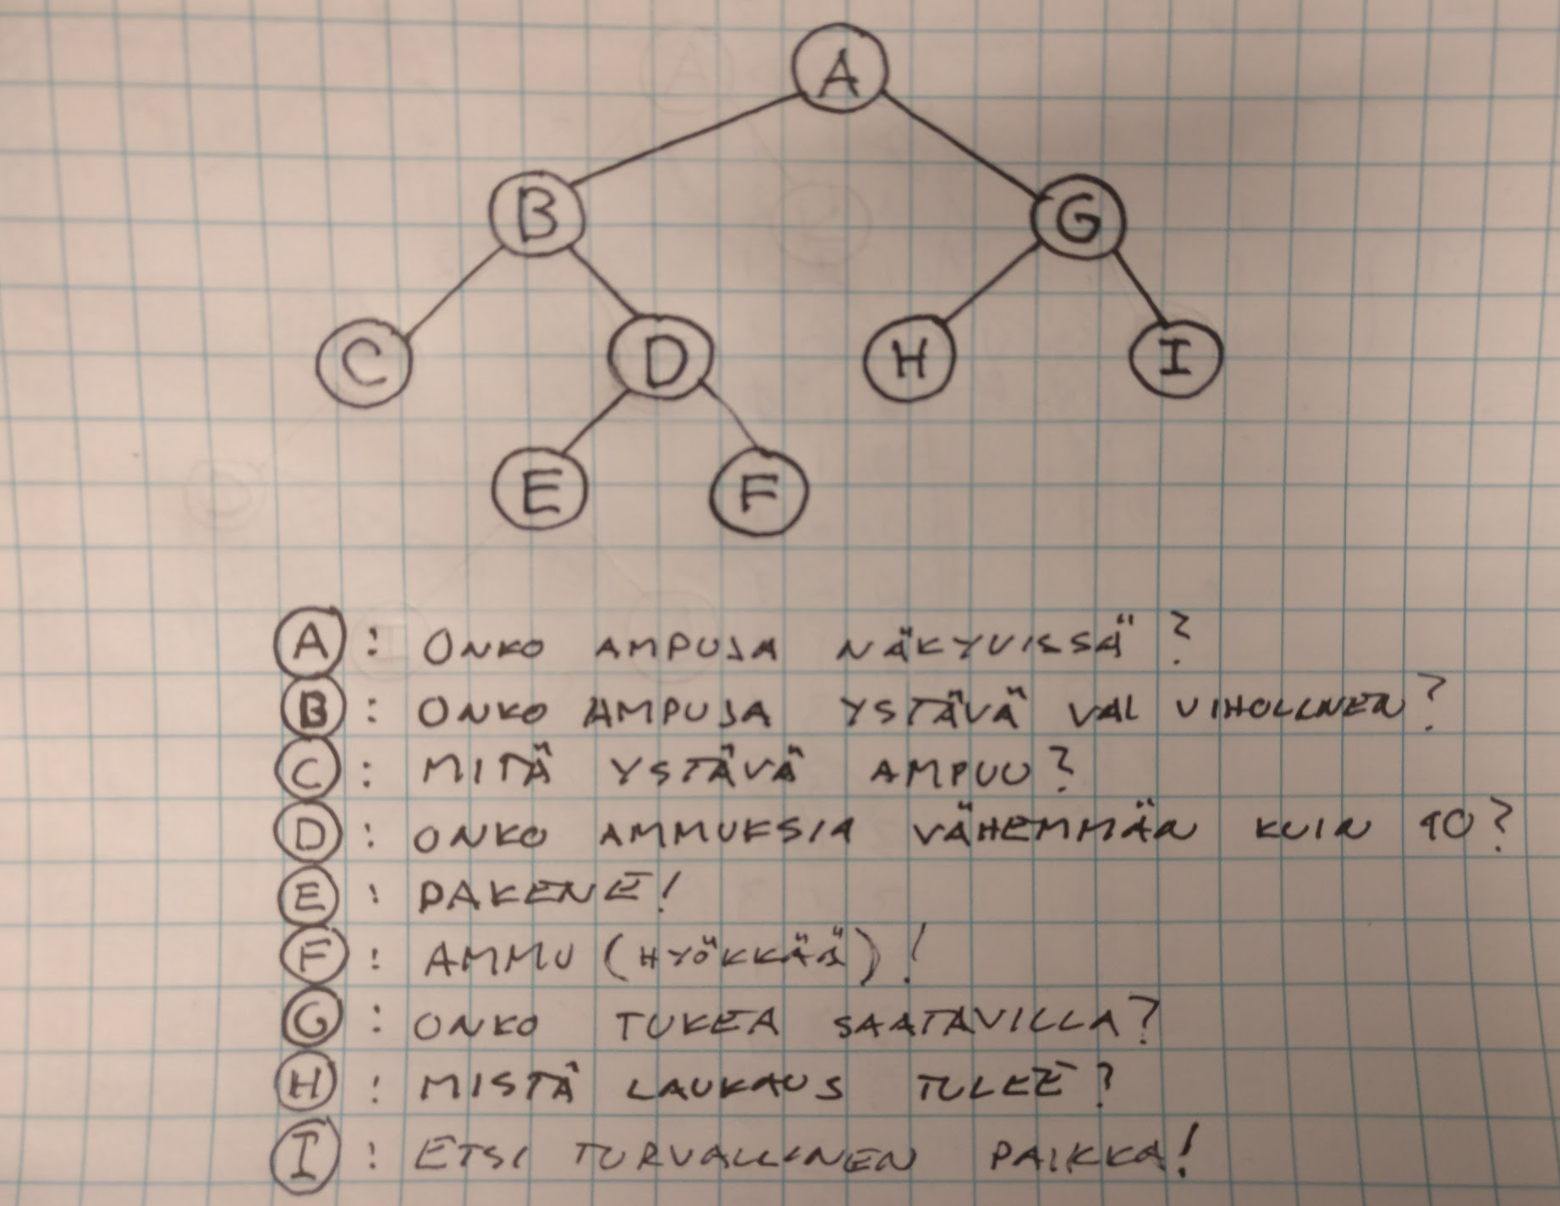 A
B
G
C
D
H
I
E
F
A : ONKO AMPUJA NÄKYVISSÄ ?
B : ONKO AMPUJA YSTÄVÄ VAI VIHOLLINEN ?
C : MITÄ YSTÄVÄ AMPUU ?
D : ONKO AMMUKSIA VÄHEMMÄN KUIN 10 ?
E : PAKENE !
F : AMMU (HYÖKKÄÄ) !
G : ONKO TUKEA SAATAVILLA ?
H : MISTÄ LAUKAUS TULEE ?
I : ETSI TURVALLINEN PAIKKA !